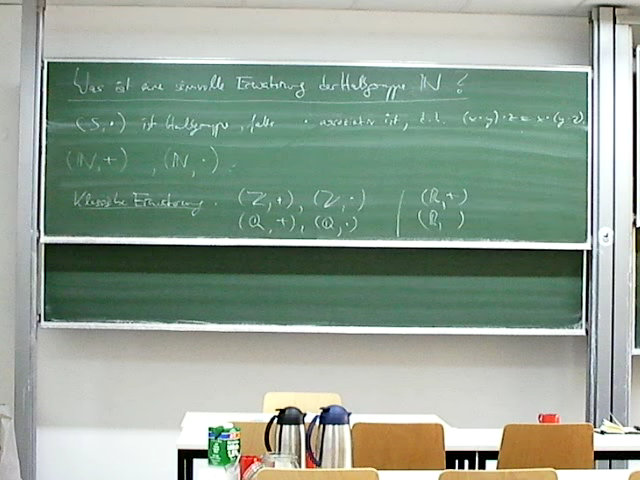 Was ist eine sinnvolle Erweiterung der Halbgruppe ℕ ?
(S,·) ist Halbgruppe, falls · assoziativ ist, d.h. (x·y)·z = x·(y·z)
(ℕ,+) , (ℕ,·) .
Klassische Erweiterung . (ℤ,+), (ℤ,·) | (ℝ,+)
(ℚ,+), (ℚ,·) | (ℝ, )